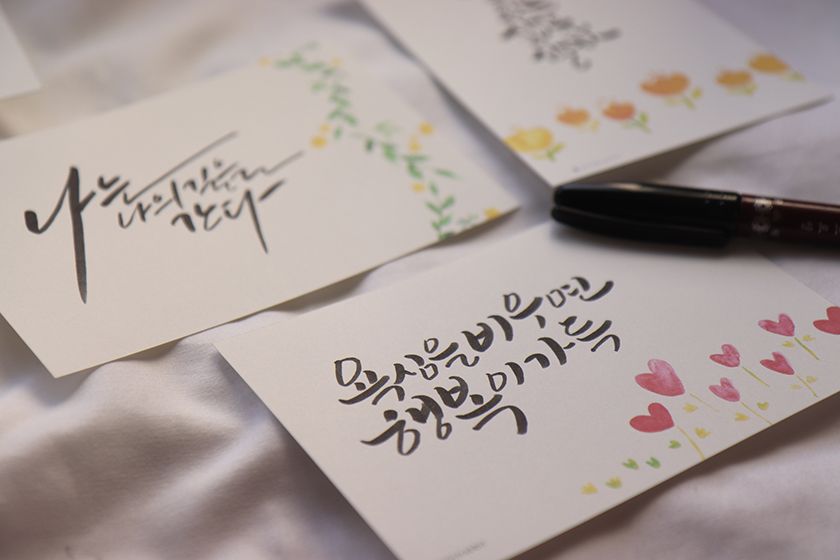 나는
나의 길을
간다
욕심을 비우면
행복이 가득